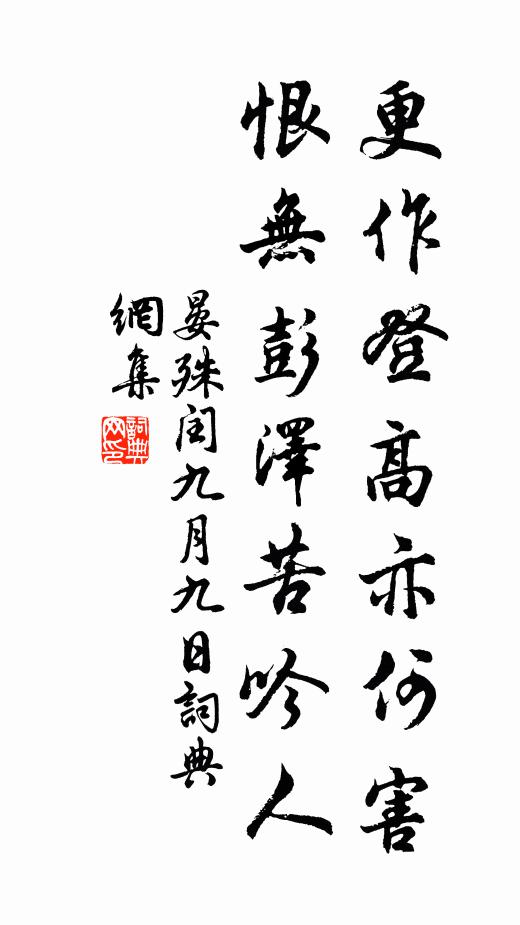 更作登高亦何害
恨無彭澤苦吟人
晏殊閏九月九日詞典
網集
詞典
网印